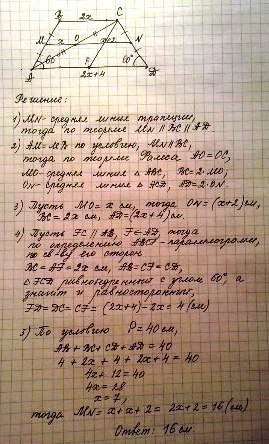 B 2x C
M x O x+2 N
60° 60°
A F D
2x+4
Решение:
1) MN - средняя линия трапеции,
тогда по теореме MN ∥ BC ∥ AD.
2) AM=MB по условию, MN ∥ BC,
тогда по теореме Фалеса AO=OC,
MO - средняя линия △ ABC, BC=2·MO;
ON - средняя линия △ ACD, AD=2·ON.
3) Пусть MO = x см, тогда ON = (x+2) см,
BC = 2x см, AD = (2x+4) см.
4) Пусть FC ∥ AB, F ∈ AD, тогда
по определению ABCF - параллелограмм,
по св-ву его сторон
BC = AF = 2x см, AB = CF = CD,
△ FCD равнобедренный с углом 60°, а
значит и равносторонний,
FD = DC = CF = (2x+4) - 2x = 4 (см)
5) По условию P = 40 см,
AB + BC + CD + AD = 40
4 + 2x + 4 + 2x + 4 = 40
4x + 12 = 40
4x = 28
x = 7,
тогда MN = x + x + 2 = 2x + 2 = 16 (см)
Ответ: 16 см